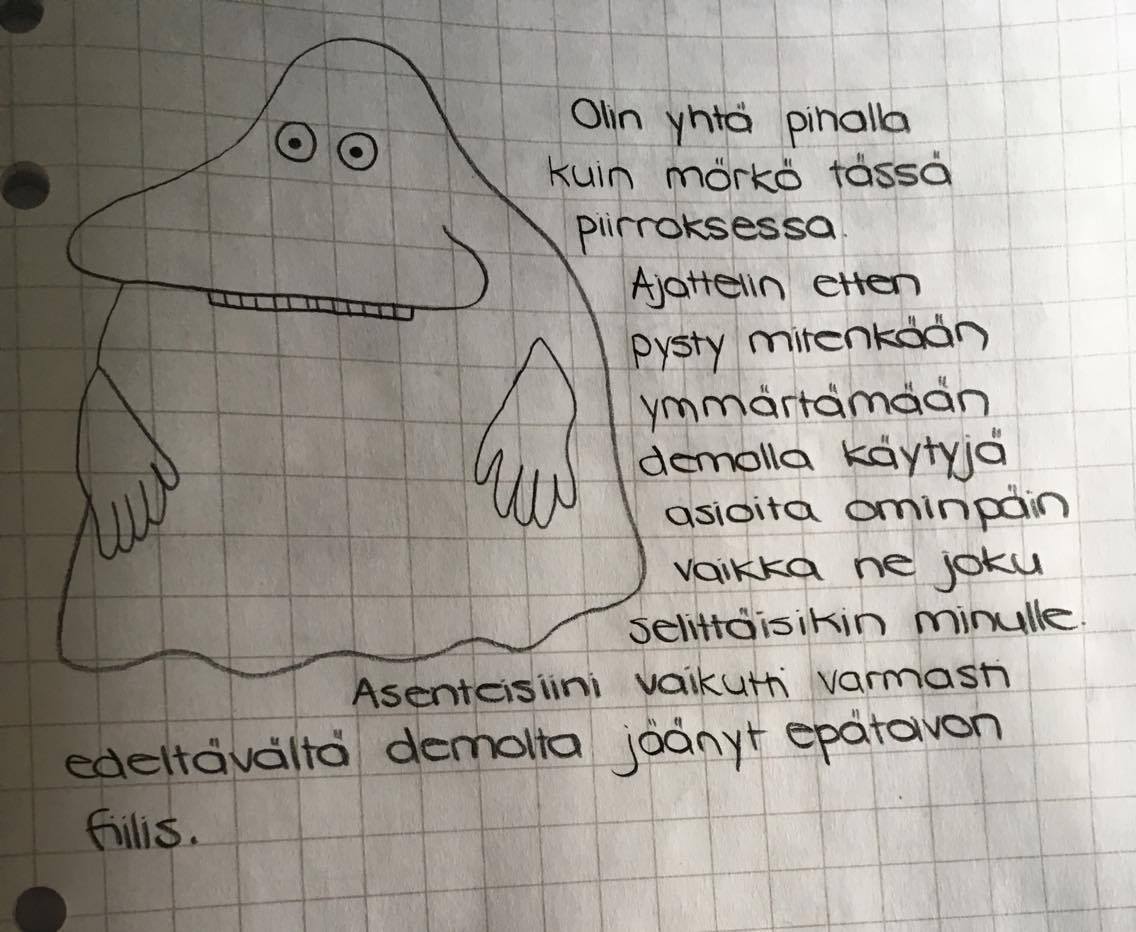 Olin yhtä pihalla
kuin mörkö tässä
piirroksessa.
Ajattelin etten
pysty mitenkään
ymmärtämään
demolla käytyjä
asioita ominpäin
vaikka ne joku
selittäisikin minulle.
Asenteisiini vaikutti varmasti
edeltävältä demolta jäänyt epätoivon
fiilis.